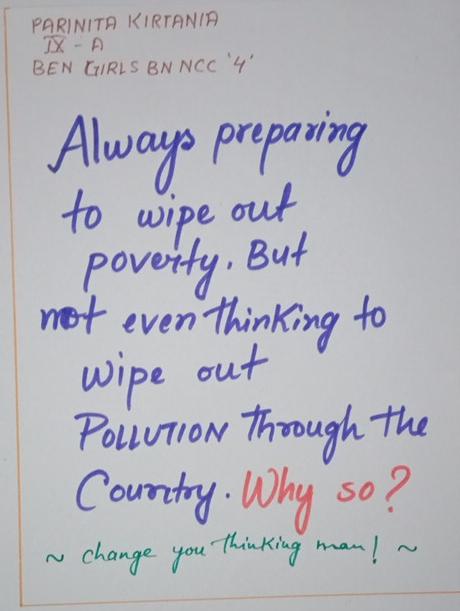 PARINITA KIRTANIA
IX - A
BEN GIRLS BN NCC '4'
Always preparing
to wipe out
poverty. But
not even thinking to
wipe out
POLLUTION through the
Country. Why so?
~ change you thinking man! ~